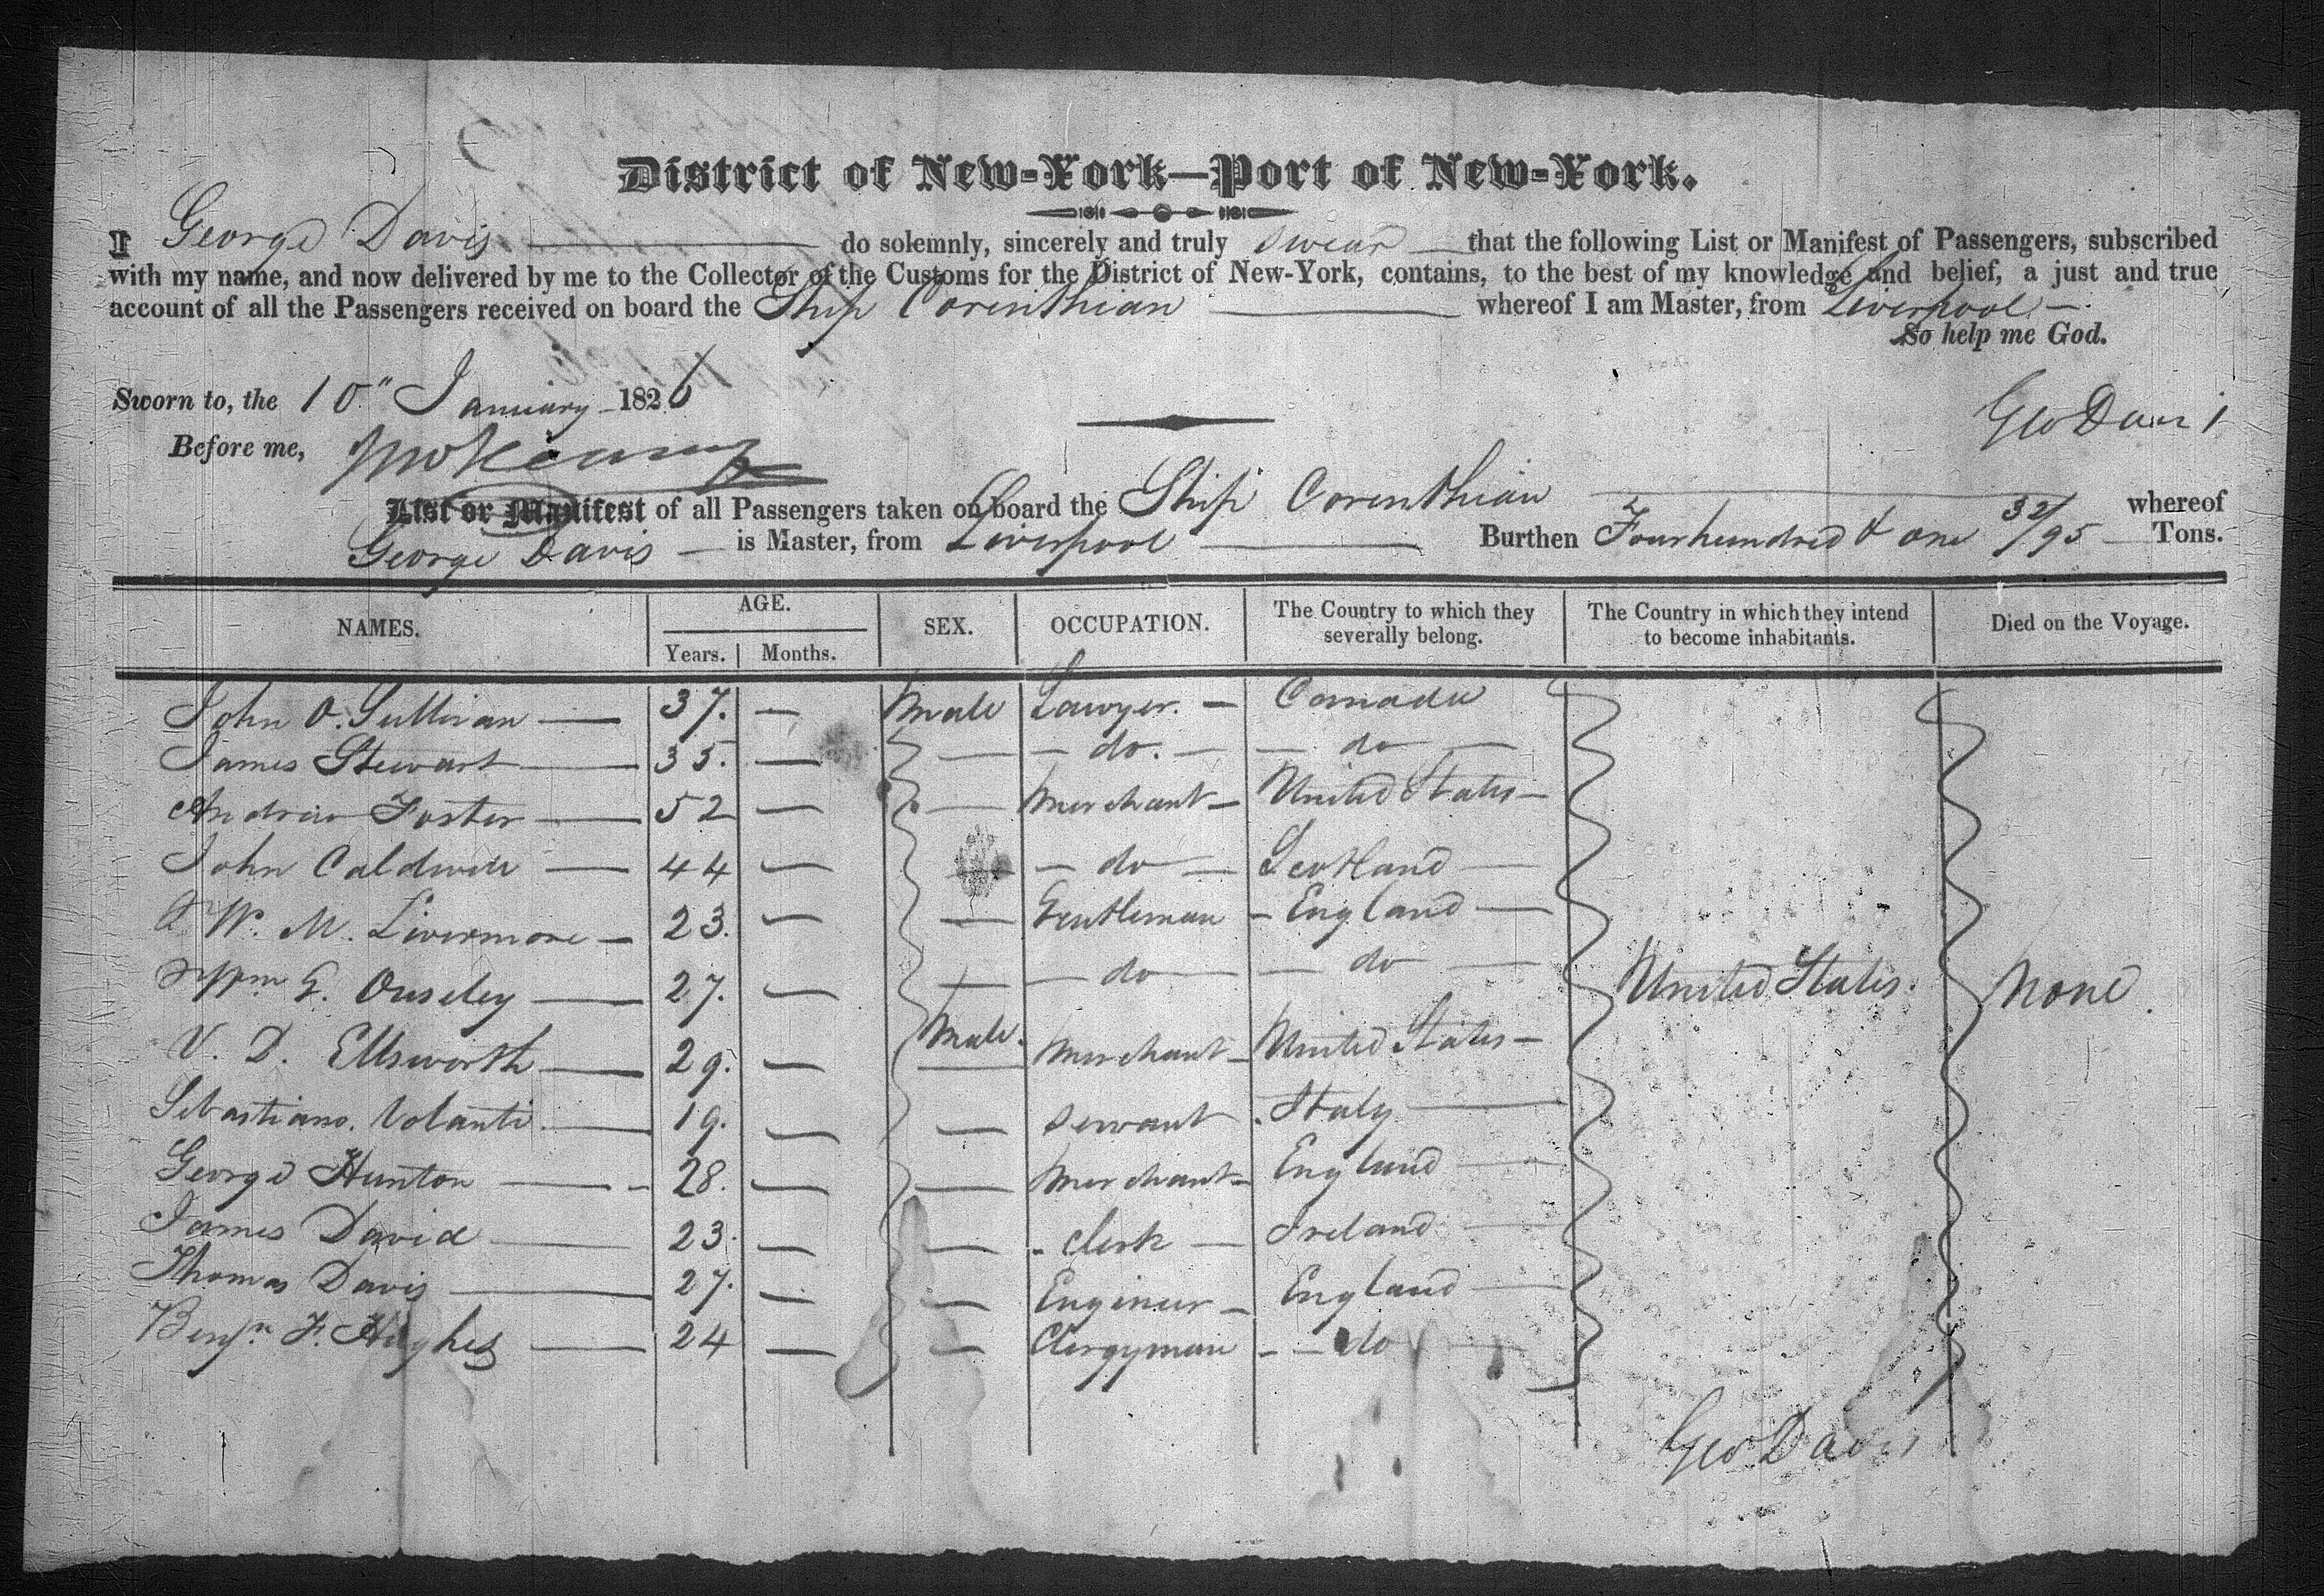 District of New-York—Port of New-York.
I George Davis do solemnly, sincerely and truly swear that the following List or Manifest of Passengers, subscribed
with my name, and now delivered by me to the Collector of the Customs for the District of New-York, contains, to the best of my knowledge and belief, a just and true
account of all the Passengers received on board the Ship Corinthian whereof I am Master, from Liverpool
So help me God.
Sworn to, the 10" January 1826
Geo Davis
Before me,
List or Manifest of all Passengers taken on board the Ship Corinthian whereof
George Davis is Master, from Liverpool Burthen Four hundred & one 32/95 Tons.
NAMES. AGE. SEX. OCCUPATION. The Country to which they severally belong. The Country in which they intend to become inhabitants. Died on the Voyage.
Years. Months.
John O. Sullivan — 37. — Male Lawyer. — Canada
James Stewart — 35. — — do. — — do —
Andrew Foster — 52 — — Merchant — United States —
John Caldwell — 44 — — do — Scotland —
W. M. Livermore — 23. — — Gentleman — England —
Wm G. Ouseley — 27. — — — do — — do — United States. None.
V. D. Ellsworth — 29. — Male. Merchant — United States —
Sebastiano. Volanti. — 19. — — servant . Italy —
George Hunton — 28. — — Merchant — England —
James David — 23. — — clerk — Ireland —
Thomas Davis — 27. — — Engineer — England —
Benjn. F. Hughes — 24 — — Clergyman — do —
Geo Davis